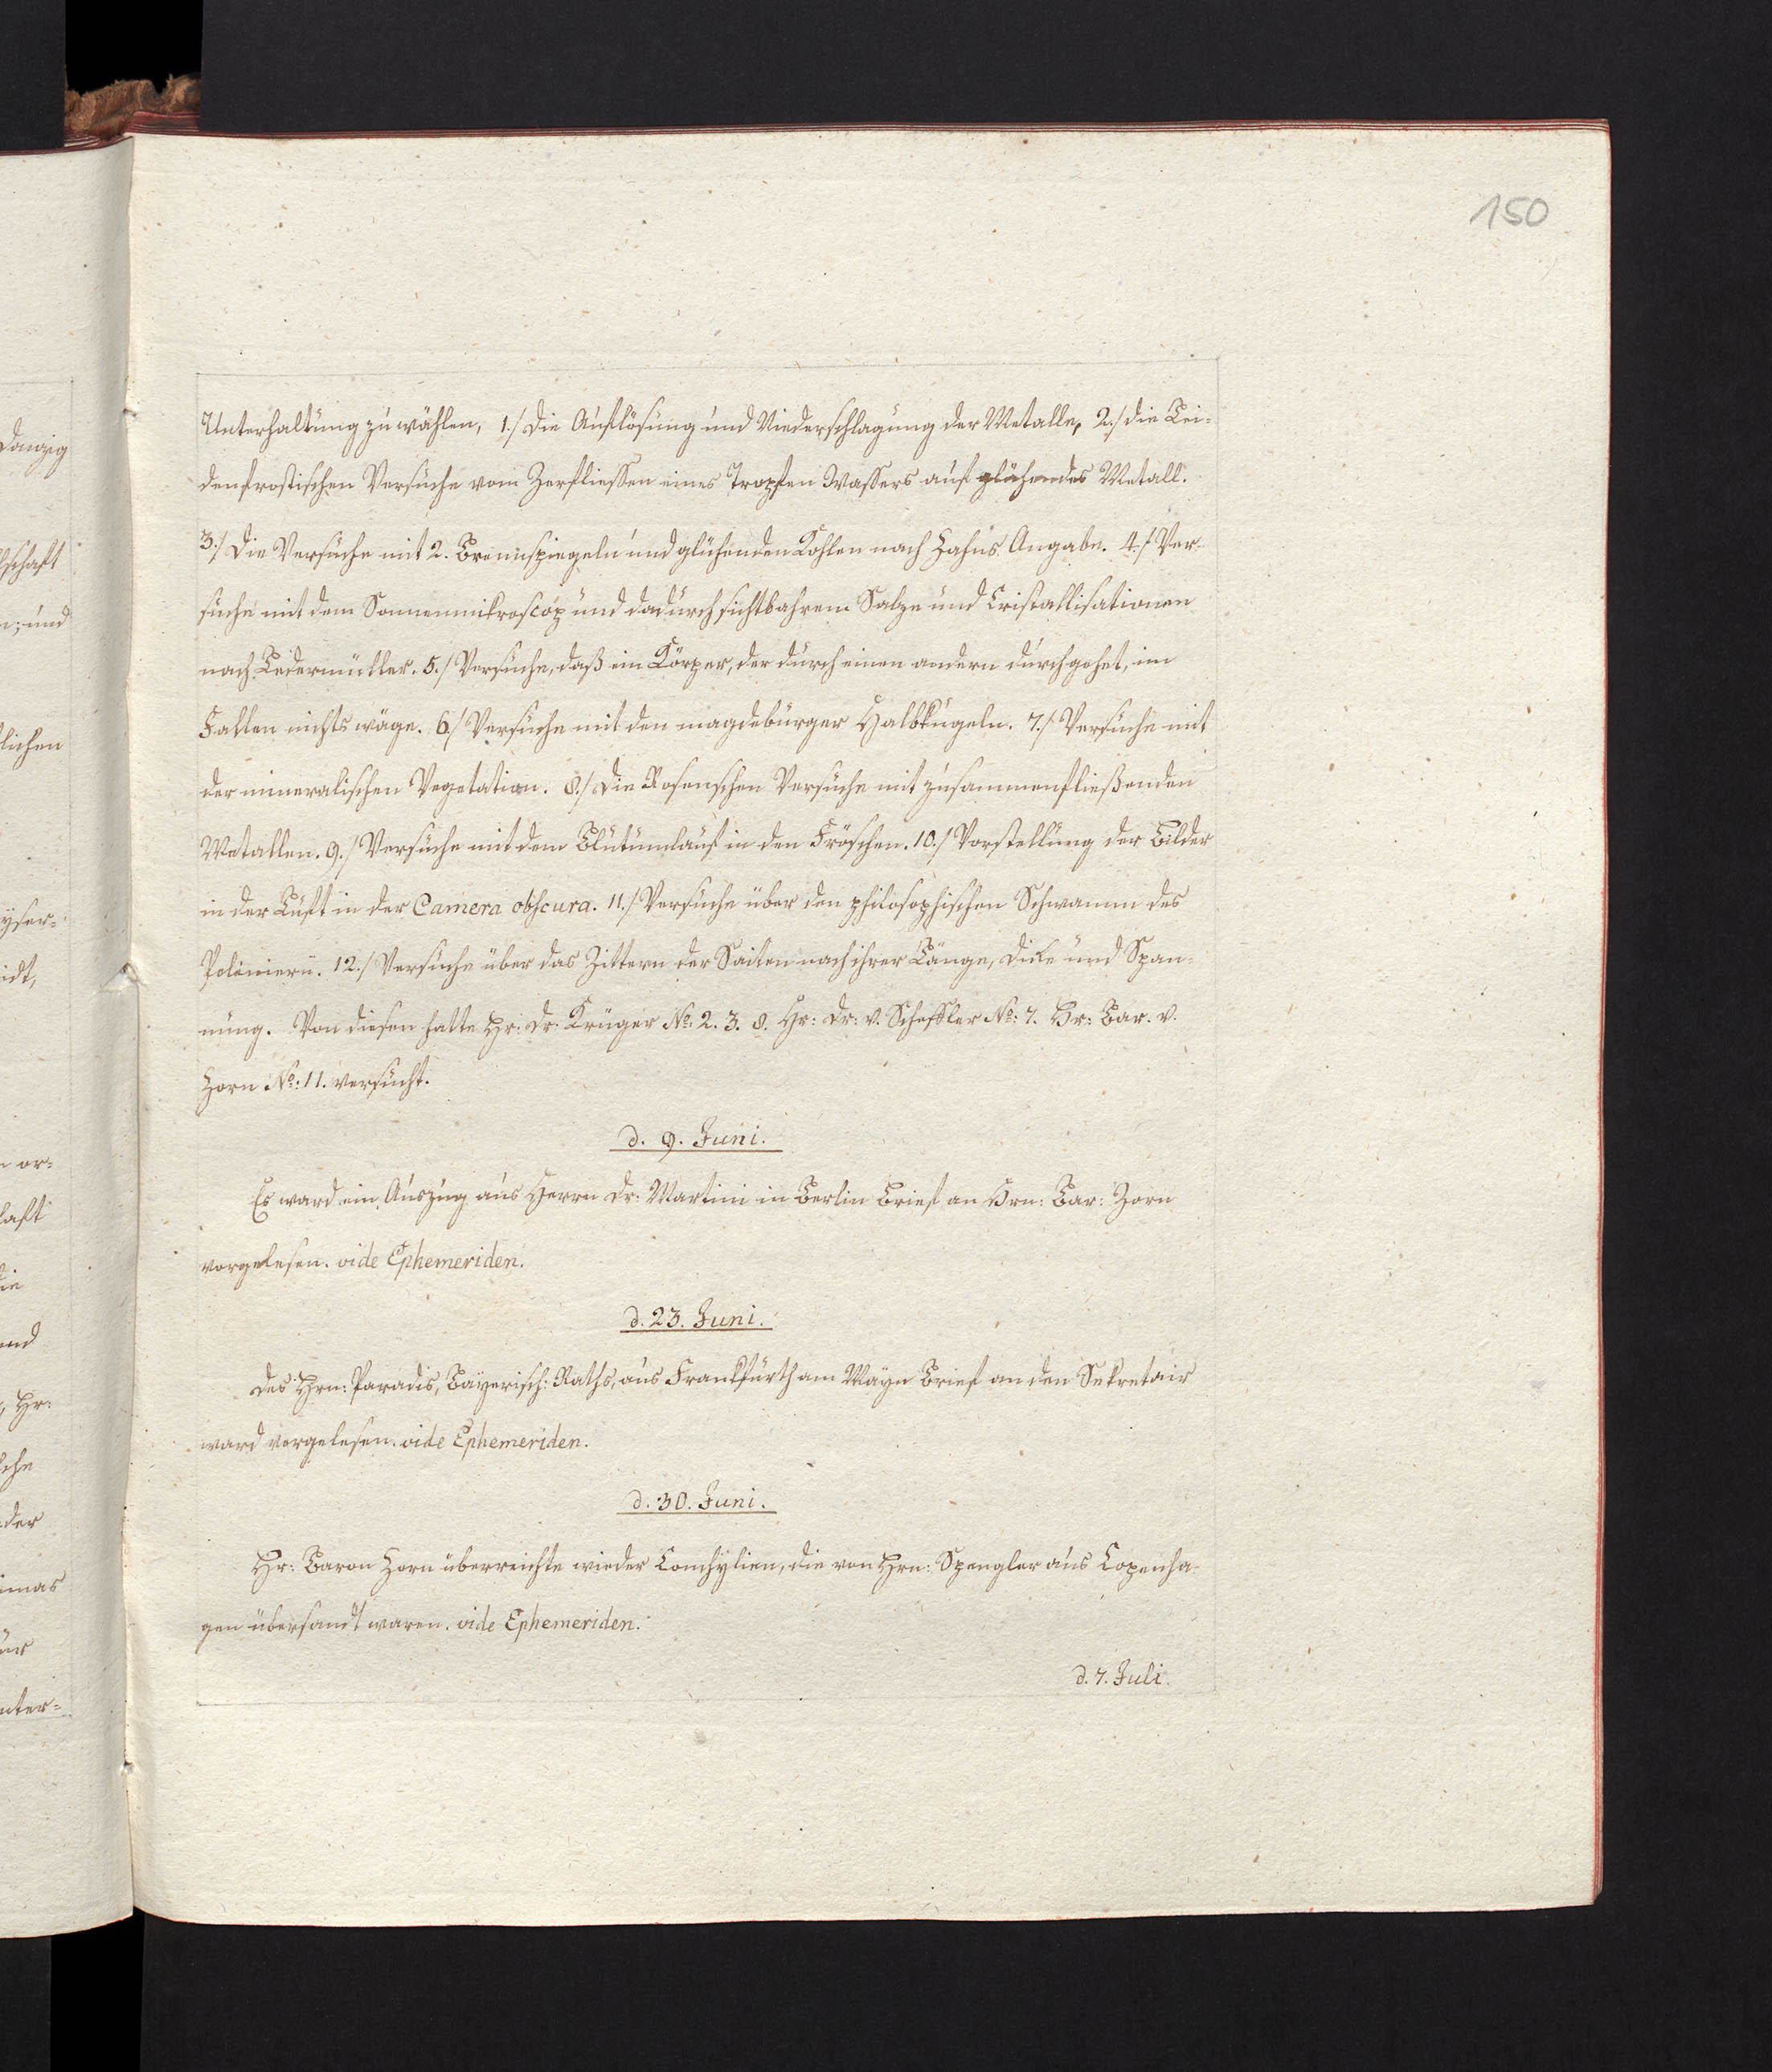 150
Danzig
lschaft
n; und
lichen
idt,
n or-
die
und
Hr:
der
nter-
Unterhaltung zu wählen, 1./ Die Auflösung und Niederschlagung der Metalle, 2./ die Lei-
denfrostischen Versuche vom Zerfliessen eines Tropfen Wassers auf glühendes Metall.
3./ Die Versuche mit 2. Brennspiegeln und glühenden Kohlen nach Hahns Angabe. 4./ Ver-
suche mit dem Sonnenmikroscop und dadurch sichtbahren Salze und Cristallisationen
nach Ledermüller. 5./ Versuche, daß ein Körper, der durch einen andern durchgehet, im
Fallen nichts wäge. 6./ Versuche mit den magdeburger Halbkugeln. 7./ Versuche mit
der mineralischen Vegetation. 8./ Die Rosenschen Versuche mit zusammenfließenden
Metallen. 9./ Versuche mit dem Blutumlauf in den Fröschen. 10./ Vorstellung der Bilder
in der Luft in der Camera obscura. 11./ Versuche über den philosophischen Schwamm des
12./ Versuche über das Zittern der Saiten nach ihrer Länge, Dicke und Span-
nung. Von diesen hatte Hr: Dr: Krüger No: 2. 3. 8. Hr: Dr: v. Scheffler No: 7. Hr: Bar. v.
Zorn No: 11. versucht.
d. 9. Juni.
Es ward ein Auszug aus Herrn Dr: Martini in Berlin Brief an Hrn: Bar: Zorn
vorgelesen. vide Ephemeriden.
d. 23. Juni.
Des Hrn: Paradis, Bayerisch: Raths, aus Frankfurth am Mayn Brief an den Sekretair
ward vorgelesen. vide Ephemeriden.
d. 30. Juni.
Hr: Baron Zorn überreichte wieder Conchylien, die von Hrn: Spengler aus Copenha-
gen übersandt waren. vide Ephemeriden.
d. 7. Juli.